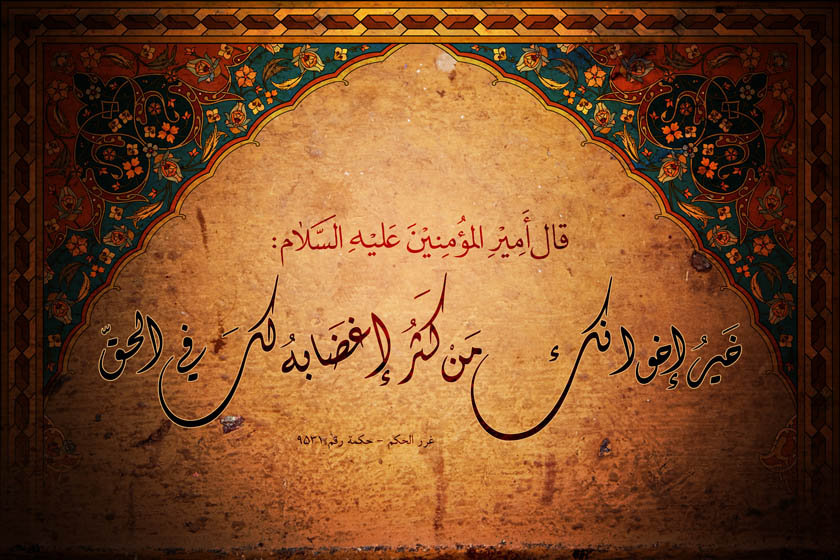 قال أَمِيْرِ المؤُمِنِيْنَ عَليْهِ السَّلام:
خَيرُ إخوانكَ مَنْ كَثَرُ إغضَابهُ لكَ في الحقّ
غرر الحكم - حكمة رقم: ٩٥٣١